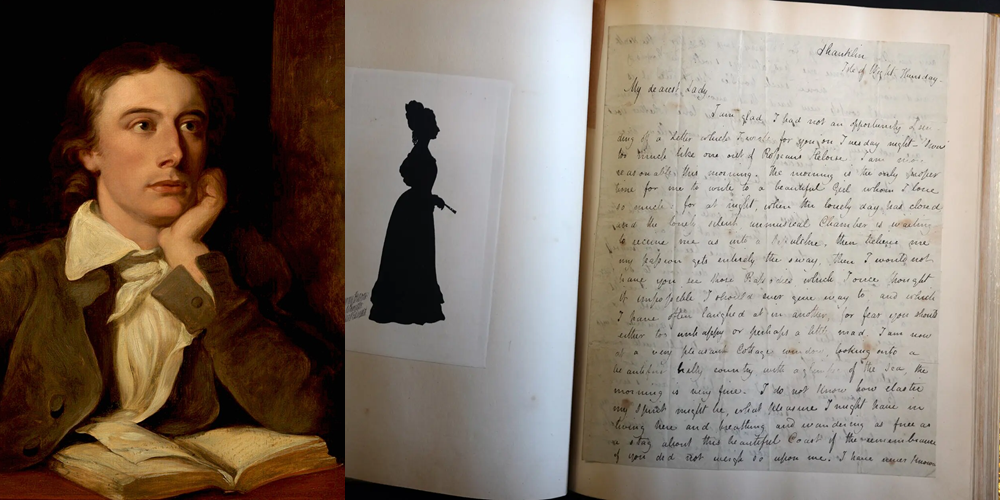 Shanklin
Isle of Wight, Thursday
My dearest Lady,
I am glad I had not an opportunity of sen-
ding off a Letter which I wrote for you on Tuesday night 'twas
too much like one out of Heloise. I am
reasonable this morning. The morning is the only proper
time for me to write to a beautiful Girl whom I love
so much: for at night, when the lonely day has closed
and the lonely silent unmusical Chamber is waiting
to receive me as into a Sepulchre, then believe me
my passion gets entirely the sway, then I would not
have you see those Rapsodies which I once thought
it impossible I should ever give way to, and which
I have often laughed at in another, for fear you should
either too unhappy or perhaps a little mad. I am now
at a very pleasant Cottage window, looking onto a
beautiful hilly country, with a glimpse of the sea, the
morning is very fine. I do not know how elastic
my spirit might be, what pleasure I might have in
living here and breathing and wandering as free as
a stag about this beautiful Coast if the remembrance
of you did not weigh so upon me. I have never known